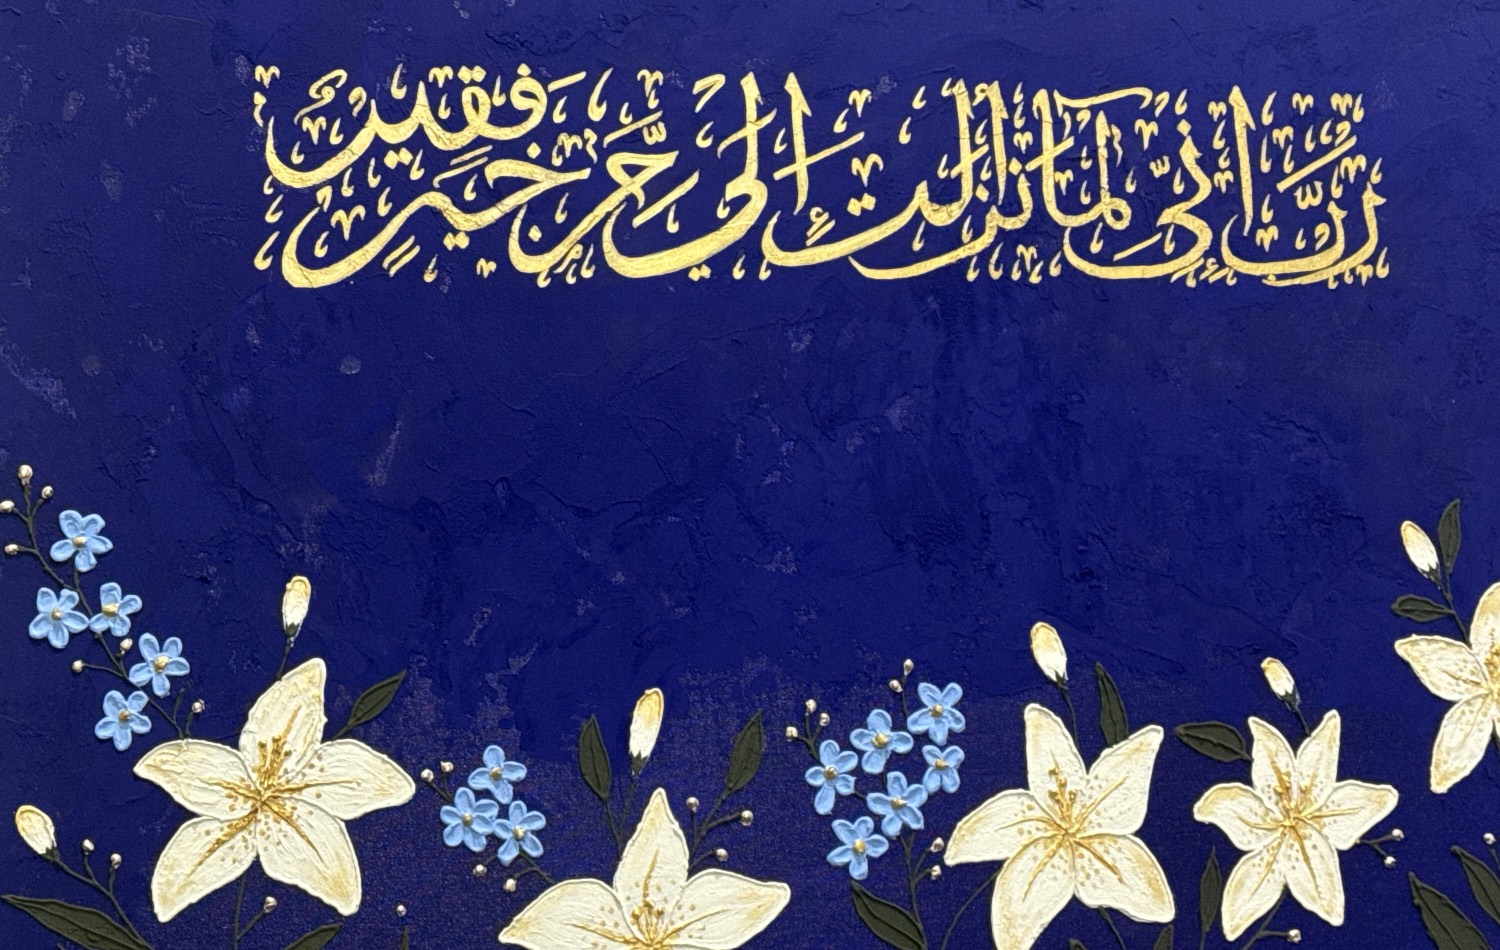 رَبِّ إِنِّى لِمَا أَنزَلْتَ إِلَىَّ مِنْ خَيْرٍ فَقِيرٌ